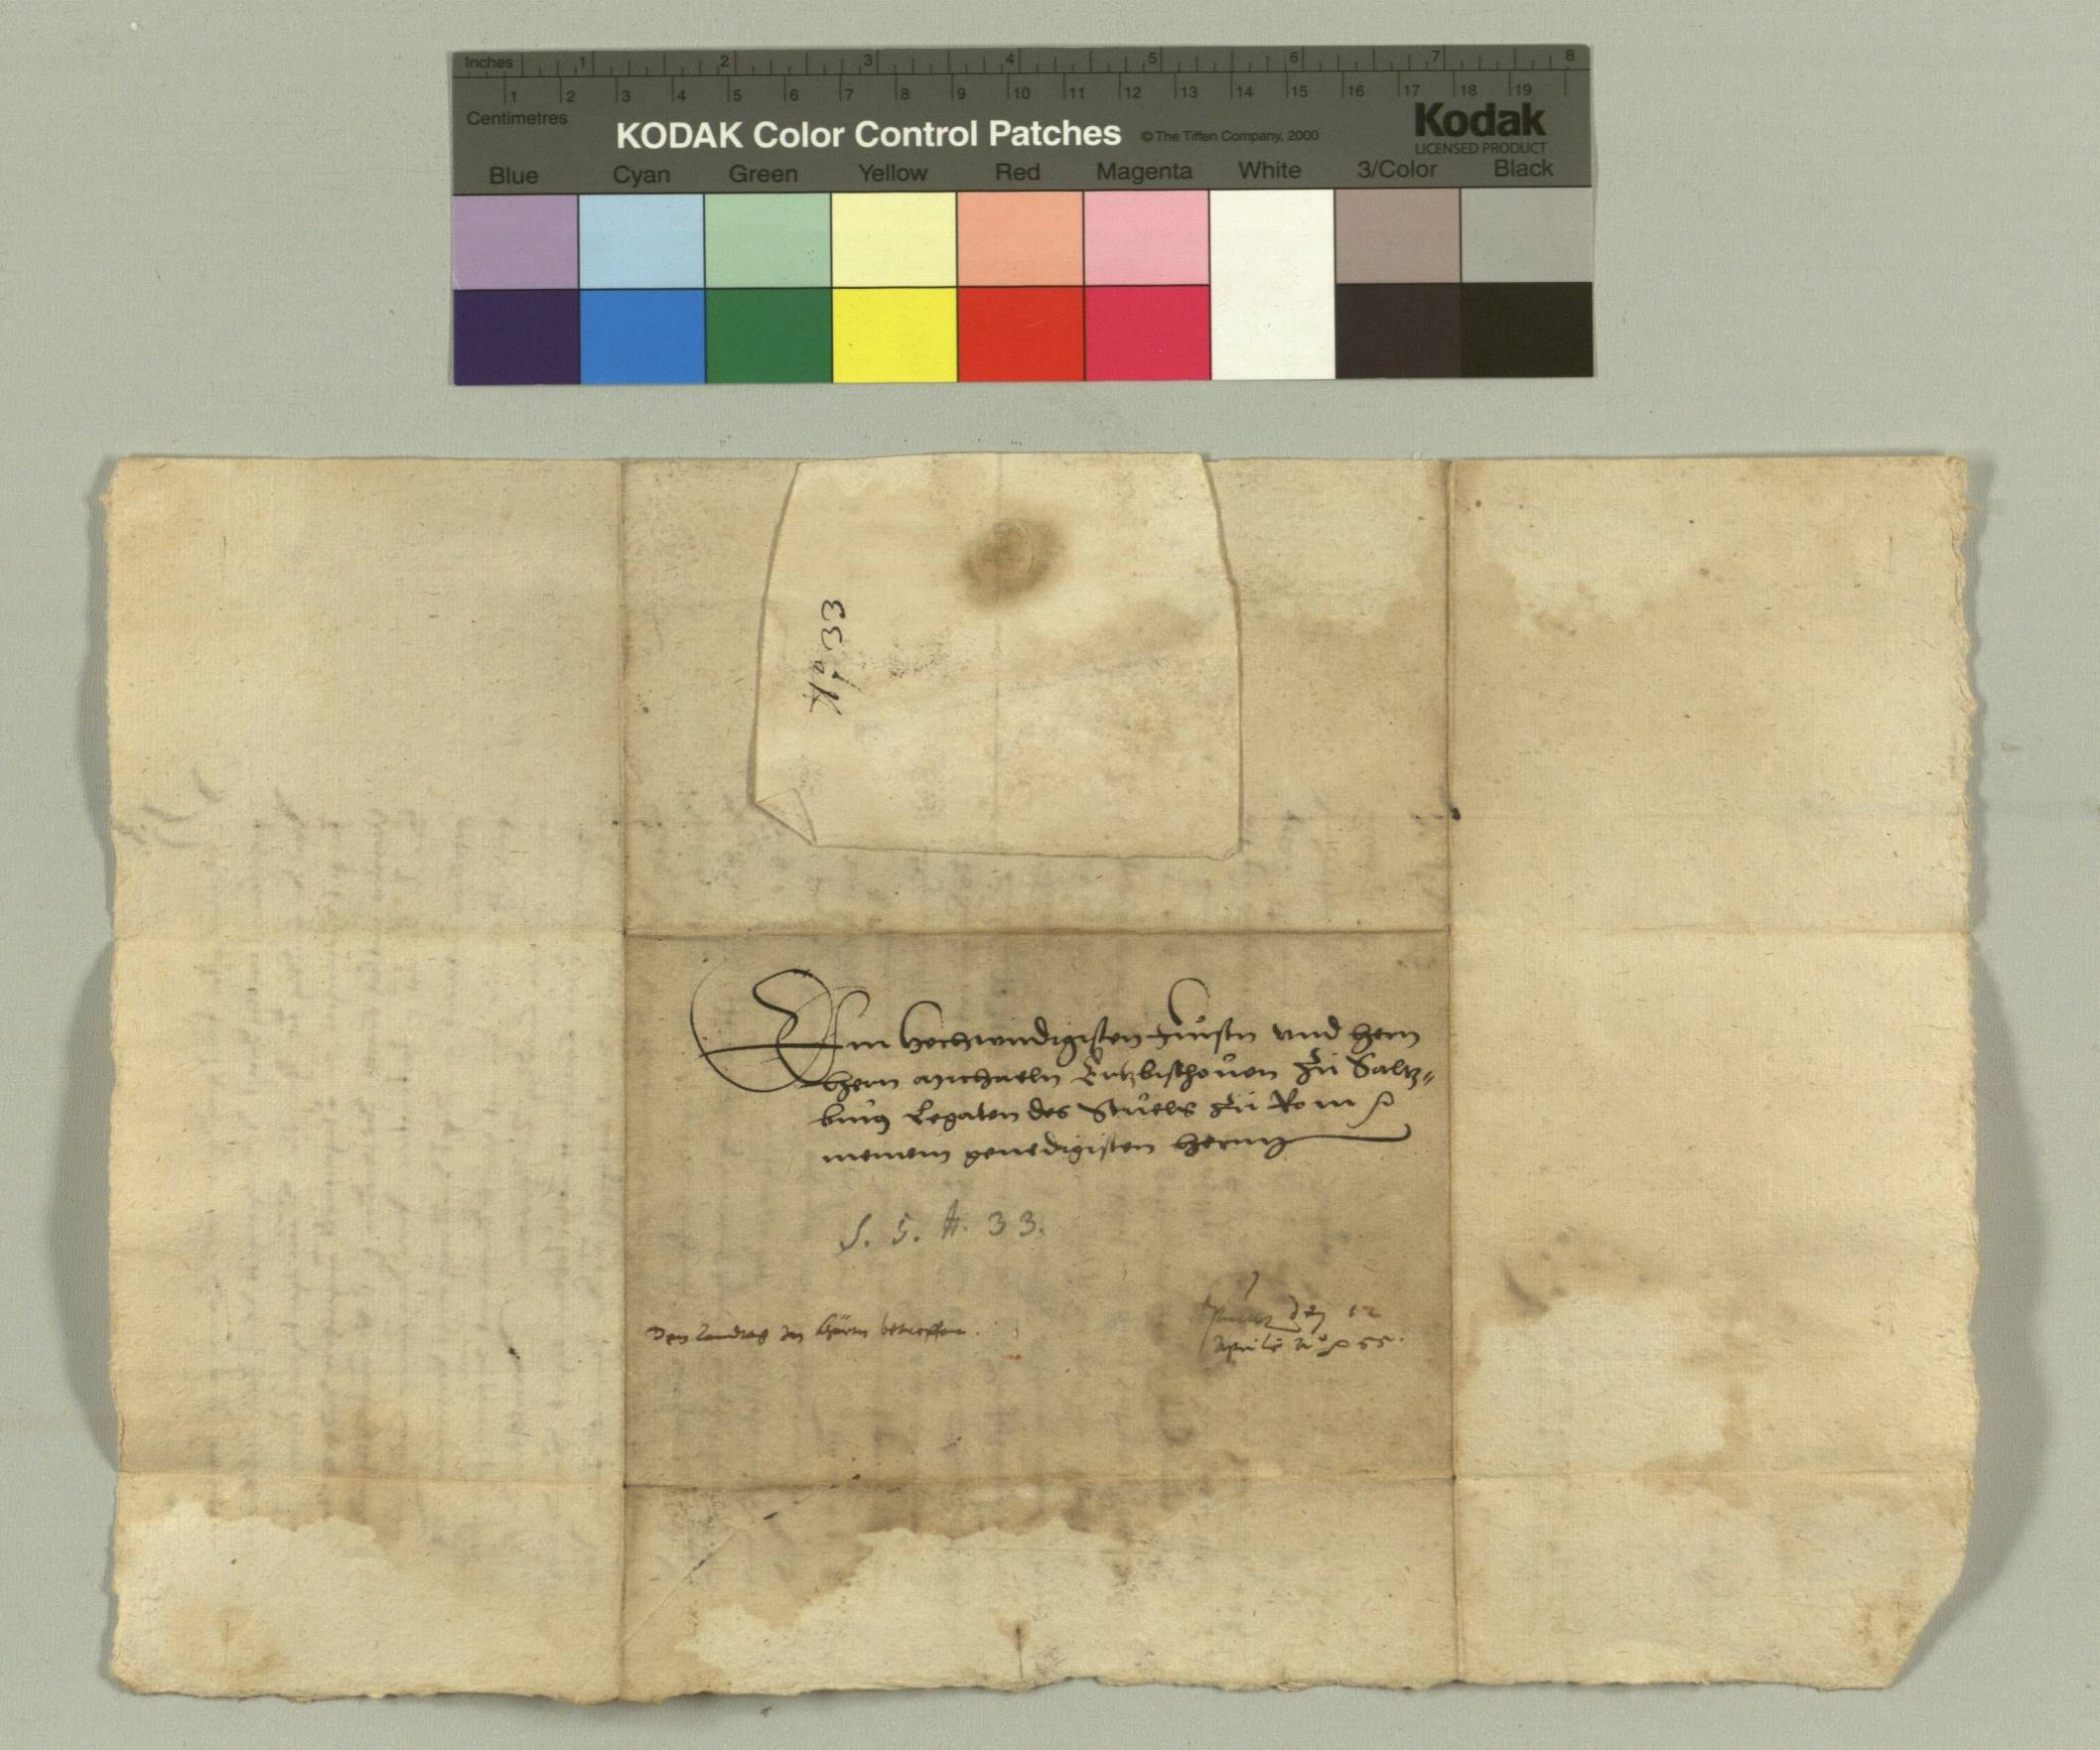 Inches 1 2 3 4 5 6 7 8
1 2 3 4 5 6 7 8 9 10 11 12 13 14 15 16 17 18 19
Centimetres
KODAK Color Control Patches © The Tiffen Company, 2000
Kodak
LICENSED PRODUCT
Blue Cyan Green Yellow Red Magenta White 3/Color Black
No 33
Dem hochwirdigisten Fürsten vnd hern
hern Michaeln Ertzbischouen zu Saltz„
burg Legaten des Stuels zu Rom
meinem genedigisten hern
S. 5. N. 33.
Den Landtag In betreffen.
den 12
Aprilis Ao 55.